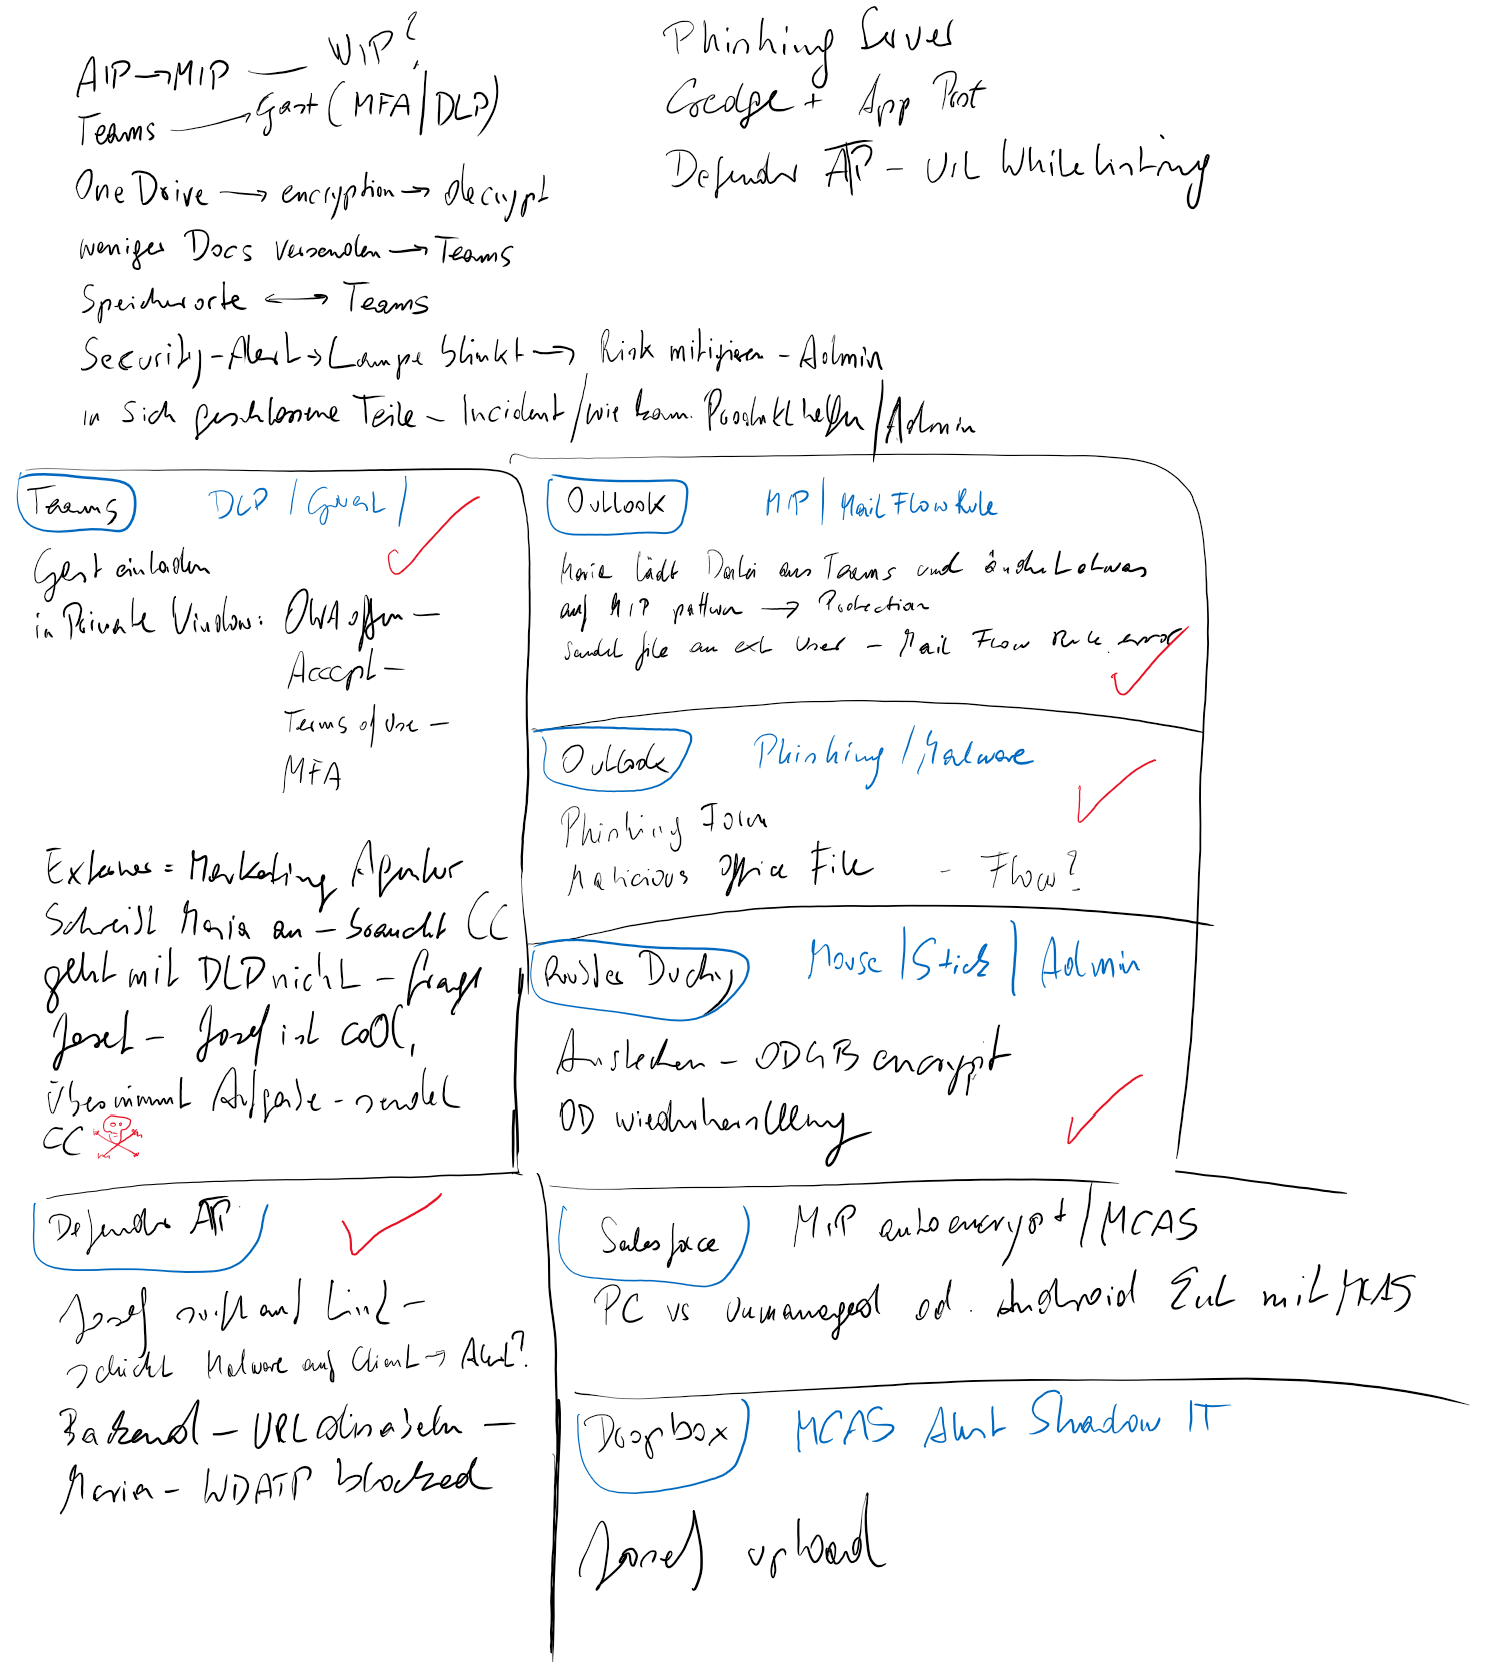 AIP → MIP — WIP?
Teams → Gast (MFA/DLP)
OneDrive → encryption → decrypt
weniger Docs versenden → Teams
Speicherorte ↔ Teams
Security-Alert → Lampe blinkt → Risk mitigieren - Admin
in sich geschlossene Teile - Incident / wie kann Produkt helfen / Admin
Phishing Server
+ App Prot
Defender ATP - URL Whitelisting
Teams DLP / Guest /
Gast einladen
in Private Window: OWA öffnen -
Accept -
Terms of Use -
MFA
Externer = Marketing Agentur
Schreibt Maria an - braucht CC
geht mit DLP nicht - fragt
Josef - Josef ist cool,
übernimmt Aufgabe - sendet
CC
Outlook MIP / Mail Flow Rule
Maria lädt Datei aus Teams und ändert etwas
auf MIP pattern → Protection
sendet file an ext User - Mail Flow Rule error
Outlook Phishing / Malware
Phishing Form
Malicious Office File - Flow?
Rubber Ducky Mouse / Stick / Admin
Anstecken - OD4B encrypt
OD wiederherstellung
Defender ATP
Josef surft auf Link -
schickt Malware auf Client → Alert?
Backend - URL disabeln -
Maria - WDATP blocked
Salesforce MIP autoencrypt / MCAS
PC vs Unmanaged od. Android Ent mit MCAS
Dropbox MCAS Alert Shadow IT
Josef upload